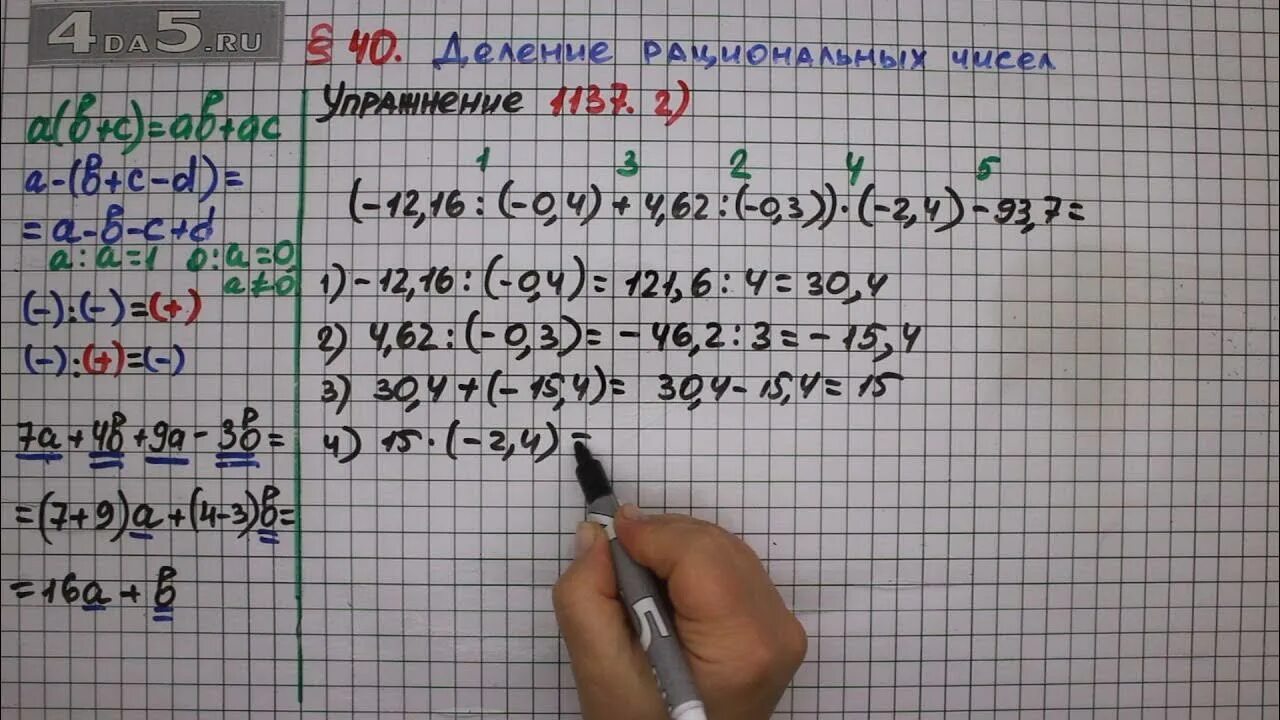 4DA5.RU
§ 40. Деление рациональных чисел
Упражнение 1137. 2)
a(b+c)=ab+ac
a-(b+c-d)=
=a-b-c+d
a:a=1 0:a=0
a≠0
(-):(-)=(+)
(-):(+)=(-)
7a+4b+9a-3b=
=(7+9)a+(4-3)b=
=16a+b
1 3 2 4 5
(-12,16:(-0,4)+4,62:(-0,3))·(-2,4)-93,7=
1) -12,16:(-0,4)=121,6:4=30,4
2) 4,62:(-0,3)=-46,2:3=-15,4
3) 30,4+(-15,4)= 30,4-15,4=15
4) 15·(-2,4)=